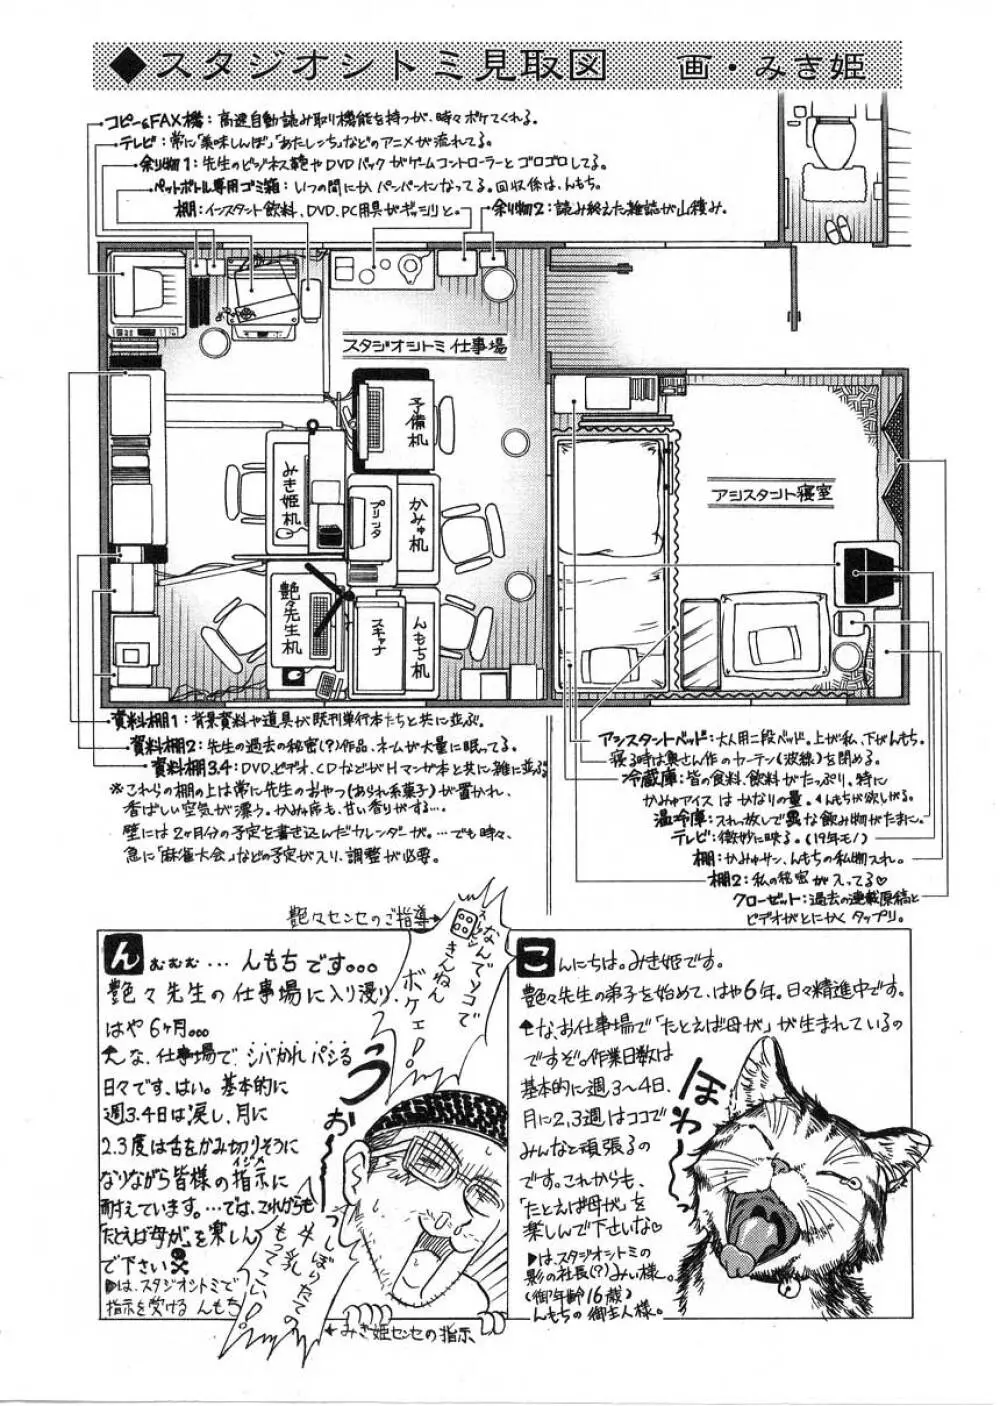 ◆スタジオシトミ見取図　画・みき姫
コピー&FAX機：高速自動読み取り機能を持つが、時々ボケてくれる。
テレビ：常に「美味しんぼ」「あたしンち」などのアニメが流れてる。
余り物1：先生のビジネス鞄やDVDパックがゲームコントローラーとゴロゴロしてる。
ペットボトル専用ゴミ箱：いつの間にかパンパンになってる。回収係は、んもち。
棚：インスタント飲料、DVD、PC用具がギッシリと。
余り物2：読み終えた雑誌が山積み。
スタジオシトミ仕事場
予備机
みき姫机
プリンタ
かみゅ机
艶々先生机
スキャナ
んもち机
アシスタント寝室
資料棚1：背景資料や道具が既刊単行本たちと共に並ぶ。
資料棚2：先生の過去の秘密(?)作品、ネームが大量に眠ってる。
資料棚3.4：DVD、ビデオ、CDなどがHマンガ本と共に雑に並ぶ。
※これらの棚の上は常に先生のおやつ(あられ系菓子)が置かれ、
香ばしい空気が漂う。かみゅ席も、甘い香りがする…。
壁には2ヶ月分の予定を書き込んだカレンダーが。…でも時々、
急に「麻雀大会」などの予定が入り、調整が必要。
アシスタントベッド：大人用二段ベッド。上が私、下がんもち。
寝る時は奥さん作のカーテン(波線)を閉める。
冷蔵庫：皆の食料、飲料がたっぷり。特に
かみゅアイスはかなりの量。んもちが欲しがる。
温冷庫：スイッチ
な飲み物がたまに。
テレビ：微妙に映る。(19年モノ)
棚：かみゅサン、んもちの私物入れ。
棚2：私の秘密が入ってる♡
クローゼット：過去の連載原稿と
ビデオがとにかくタップリ。
艶々センセのご指導→
なんでソコで
きんねん
ボケェー!!
んむむむ…んもちです。。。
艶々先生の仕事場に入り浸り、
はや6ヶ月。。。
な、仕事場で、シバかれパシる
日々です、はい。基本的に
週3.4日は涙し、月に
2.3度は舌をかみ切りそうに
なりながら皆様の指示(イジメ)に
耐えています。…では、これからも
「たとえば母が」を楽しん
で下さい
は、スタジオシトミで
指示を受ける んもち
うおーっ
しぼりたての
乳
もってこい!
←みき姫センセの指示
こんにちは。みき姫です。
艶々先生の弟子を始めて、はや6年。日々精進中です。
な、お仕事場で「たとえば母が」が生まれているの
ですぞ。作業日数は
基本的に週3~4日、
月に2,3週はココで
みんなと頑張るの
です。これからも、
「たとえば母が」を
楽しんで下さいな♡
は、スタジオシトミの
影の社長(?)みい様。
(御年齢16歳)
んもちの御主人様。
ほわ〜っ